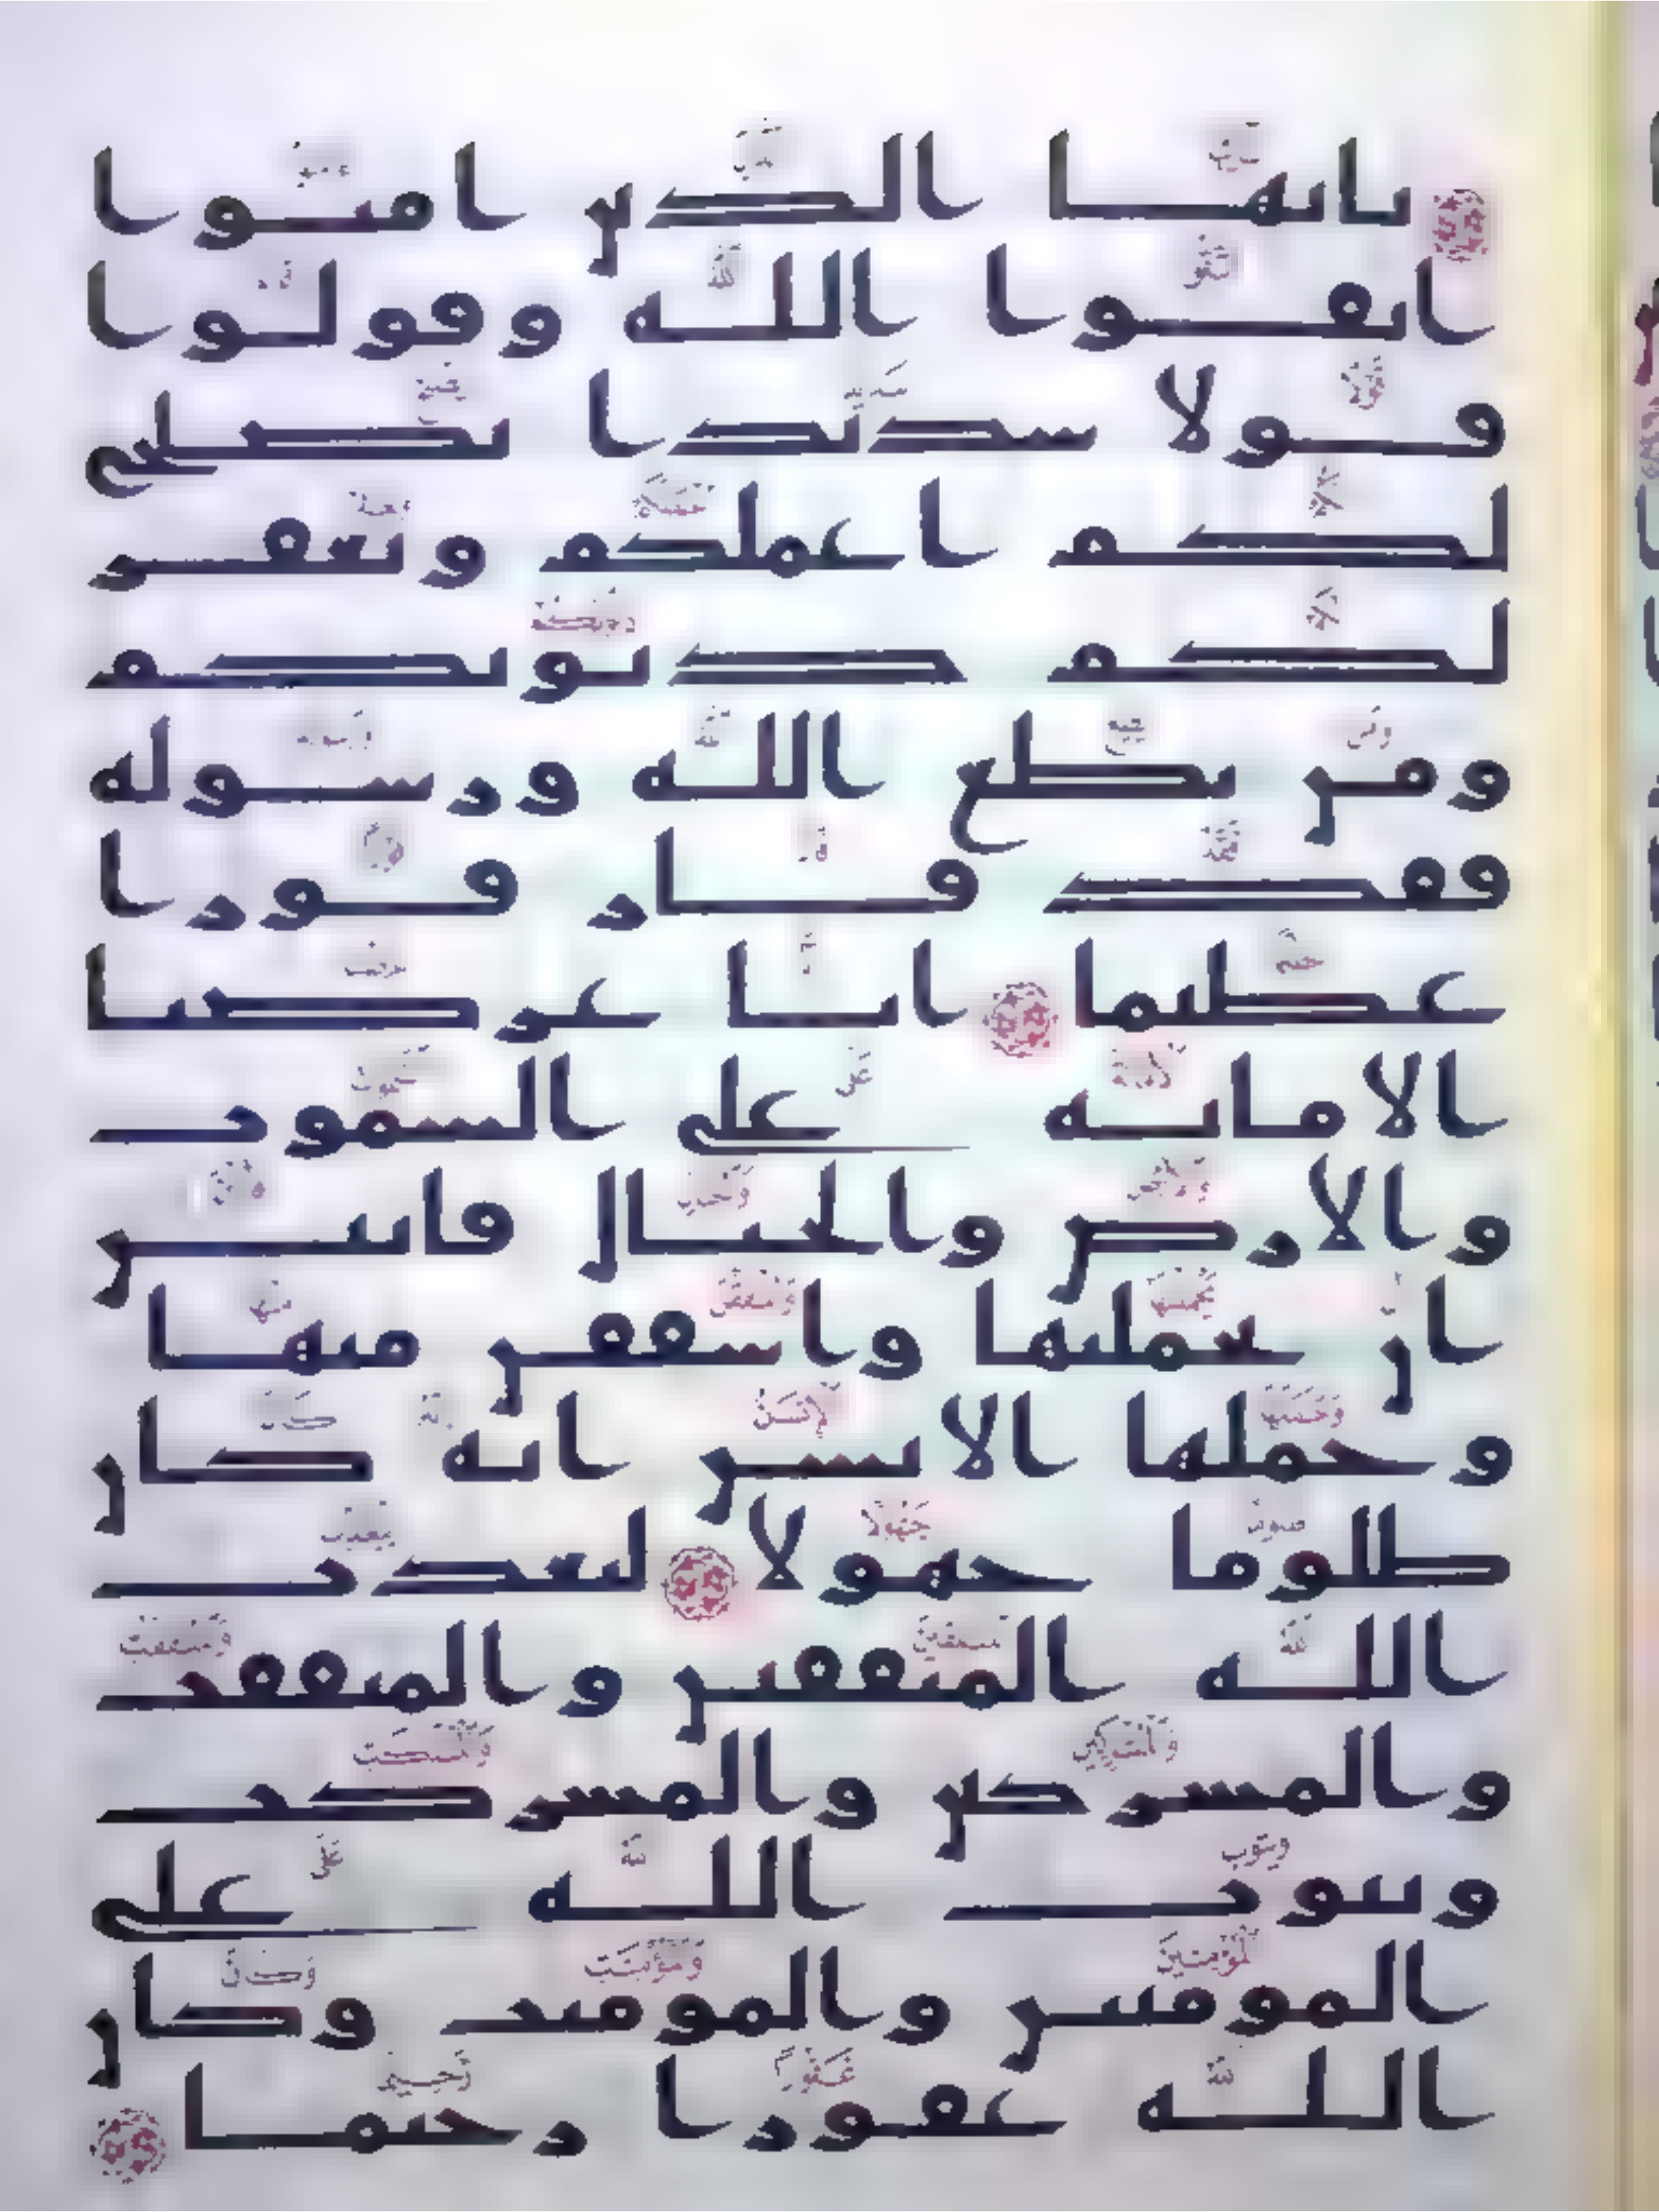 يايها الذين امنوا
اتقوا الله وقولوا
قولا سديدا يصلح
لكم اعملكم ويغفر
لكم ذنوبكم
ومن يطع الله ورسوله
فقد فاز فوزا
عظيما انا عرضنا
الامانة على السموت
والارض والجبال فابين
ان يحملنها واشفقن منها
وحملها الانسن انه كان
ظلوما جهولا ليعذب
الله المنفقين والمنفقت
والمشركين والمشركت
ويتوب الله على
المومنين والمومنت وكان
الله غفورا رحيما